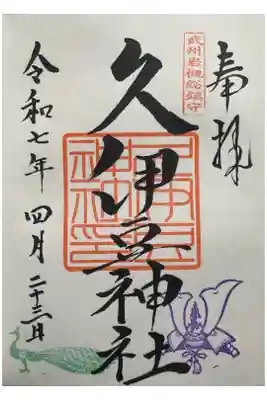 奉拝
武州岩槻総鎮守
久伊豆神社
久伊豆神社印
令和七年 四月 二十三日